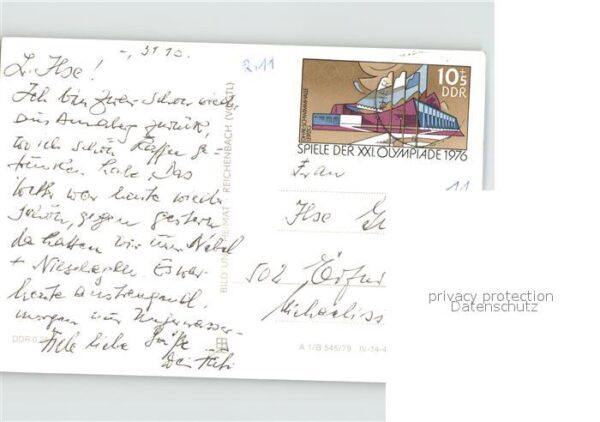 -, 31.10.
L. Ilse!
Ich bin zwar schon wieder
aus zurück,
wo ich schön Kaffee ge-
trunken habe. Das
Wetter war heute wieder
schön, gegen gestern
da hatten wir nur Nebel
+ Nieselregen. Es war
heute anstrengend,
morgen nur
Viele liebe Grüße
Dein
2.11
10+5
DDR
OHS-SCHWIMMHALLE
LEIPZIG
SPIELE DER XXI. OLYMPIADE 1976
Frau
11
Ilse G
502 Erfur
Michaeliss
BILD UND HEIMAT · REICHENBACH (VOGTL)
DDR 0,
A 1/B 545/79 IV-14-4
privacy protection
Datenschutz